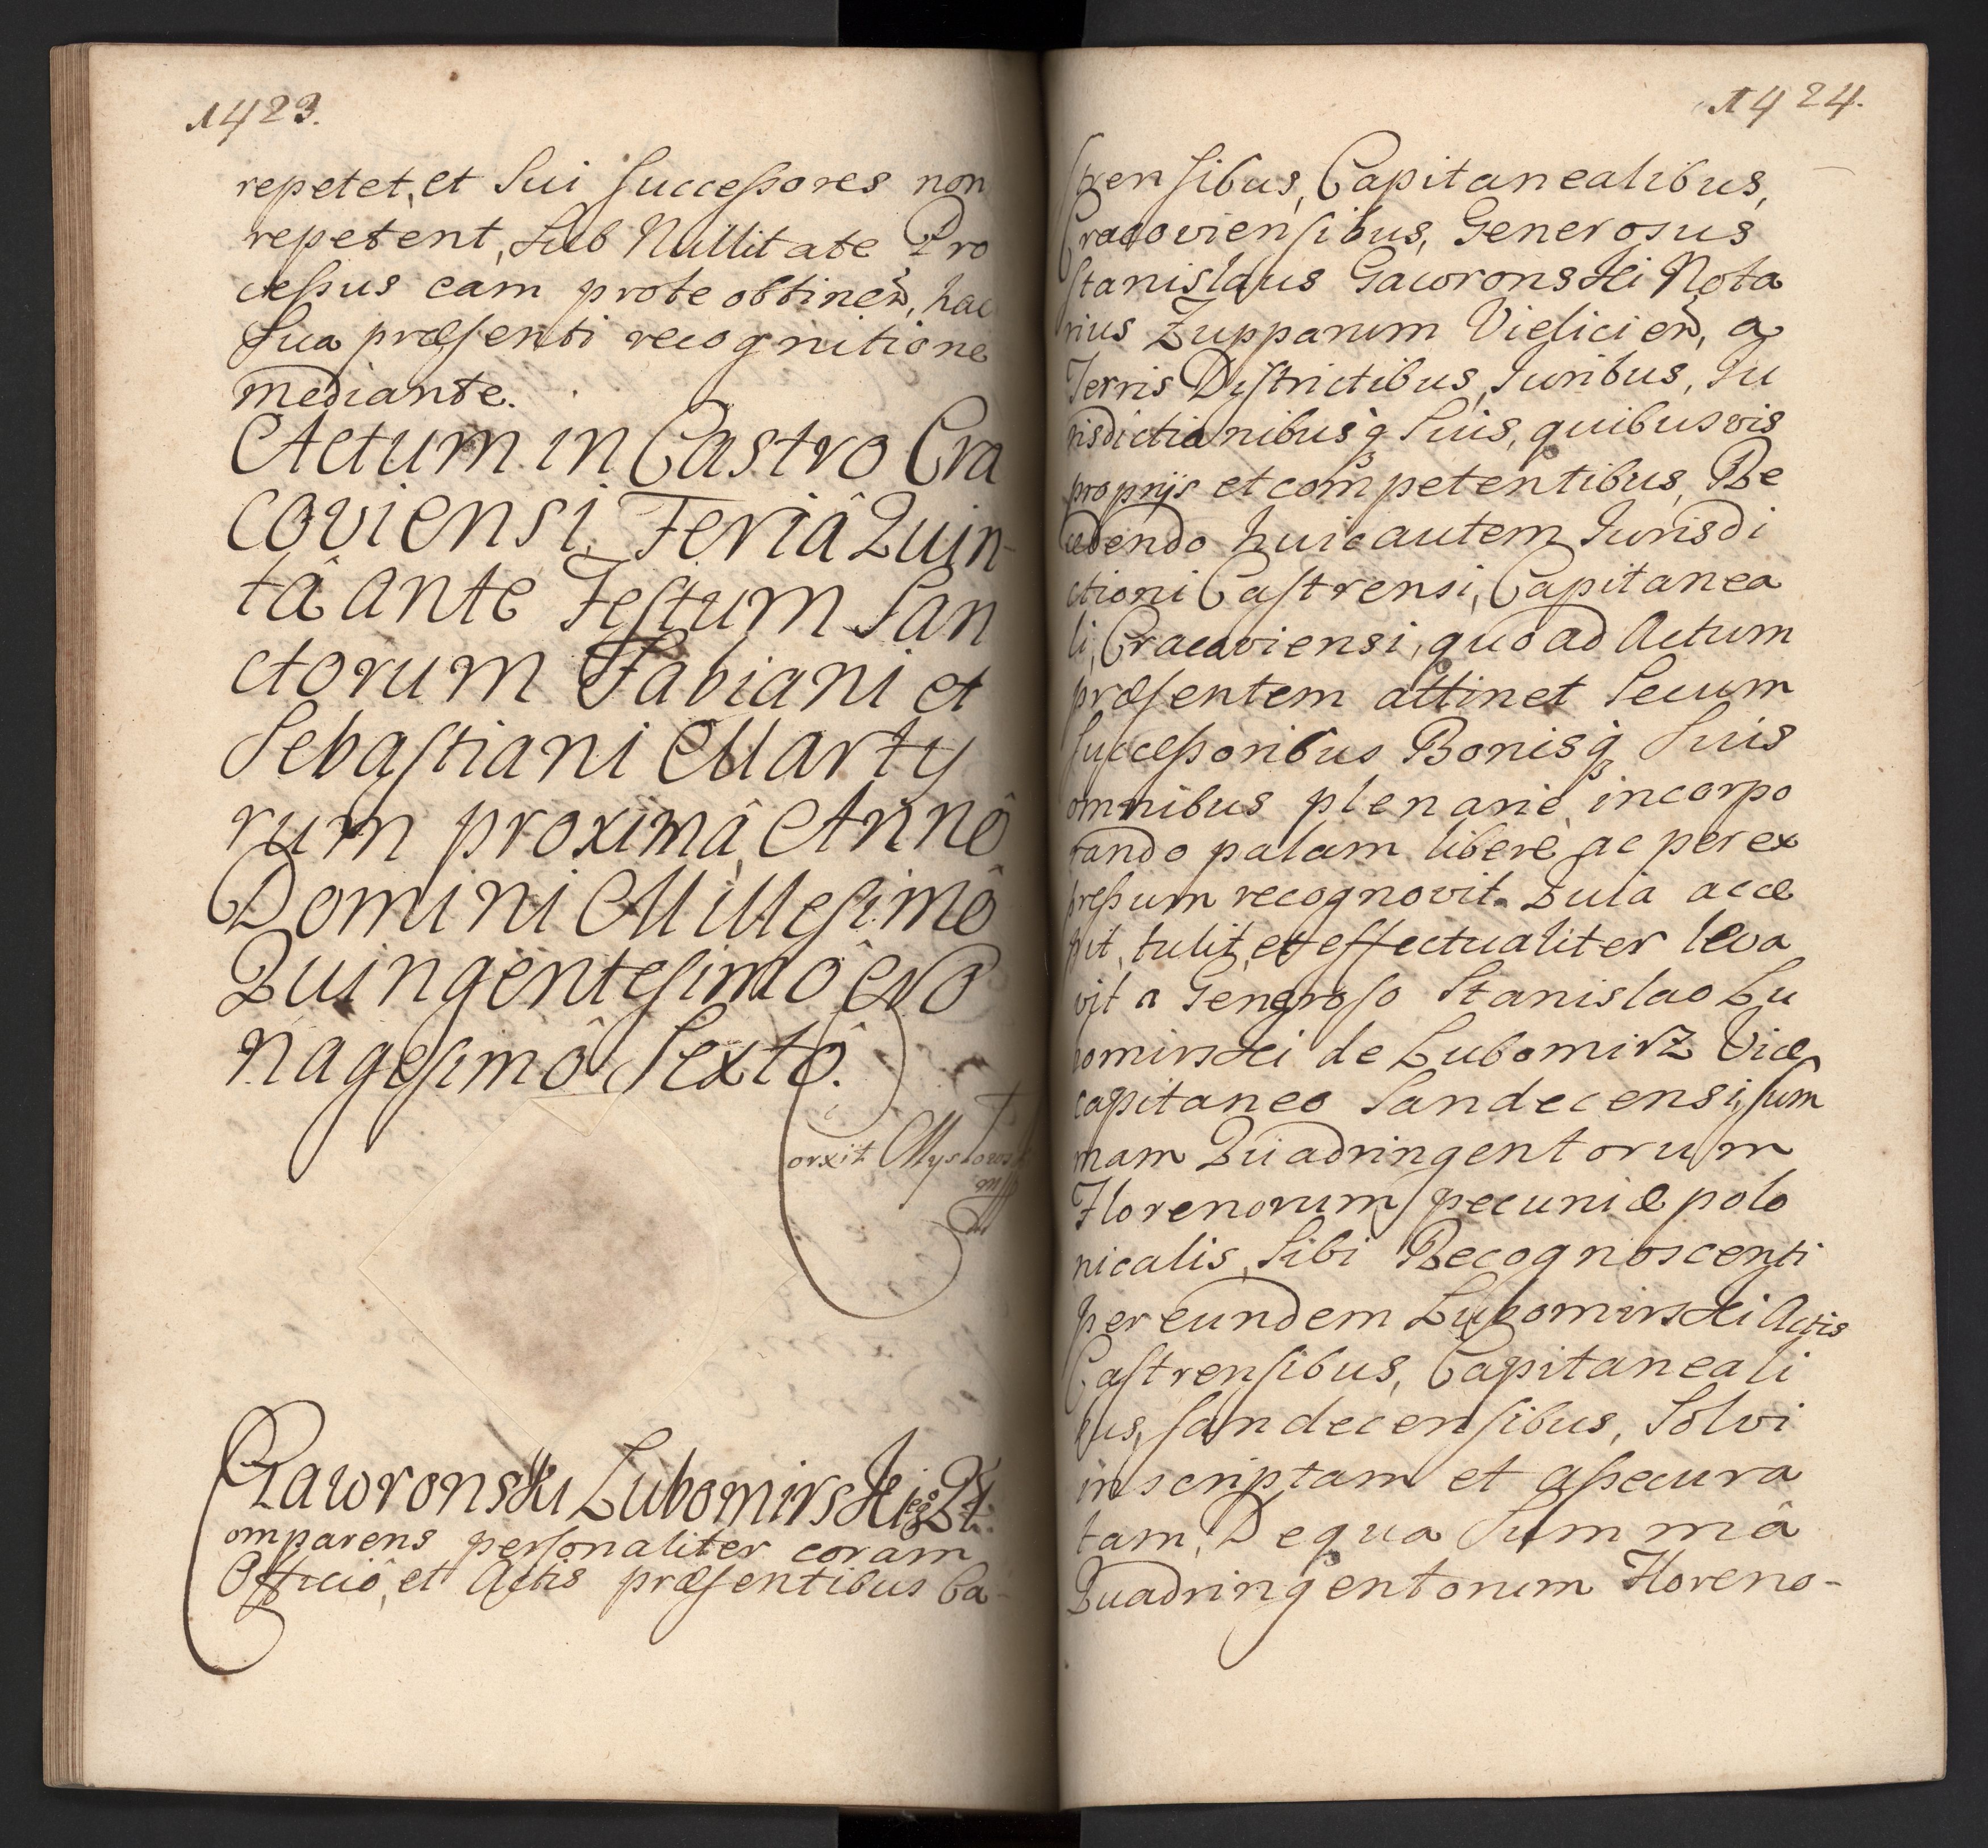 1423.
repetet, et Sui Successores non
repetent, Sub Nullitate Pro
cessus eam prote obtinen̄, hac
Sua præsenti recognitione
mediante.
Actum in Castro Cra
coviensi, Feriâ Quin-
tâ ante Festum San
ctorum Fabiani et
Sebastiani Marty
rum proximâ, Annô
Domini Millesimô
Quingentesimô No
nagesimô Sextô.
Gawronski Lubomirski
omparens personaliter coram
Officiô, et Actis præsentibus Ca-
1424.
strensibus, Capitanealibus,
Cracoviensibus, Generosus
Stanislaus Gawronski Nota
rius Zupparum Vielicien̄, a
Terris Districtibus, Juribus, Ju
risdictionibusq Suis, quibusvis
proprijs et competentibus, Re
cedendo huic autem Jurisdi
ctioni Castrensi, Capitanea
li, Cracoviensi, quo ad Actum
præsentem attinet Secum
Successoribus Bonisq Suis
omnibus plenariè incorpo
rando palam liberè ac per ex
pressum recognovit. Quia acce
pit, tulit, et effectualiter leva
vit a Generoso Stanislao Lu
bomirski de Lubomirz Vice
capitaneo Sandecensi, Sum
mam Quadringentorum
Florenorum pecuniæ polo
nicalis, Sibi Recognoscenti
per eundem Lubomirski Actis
Castrensibus, Capitaneali
bus, Sandecensibus, Solvi
inscriptam et assecura
tam, De qua Summâ
Quadringentorum Floreno-